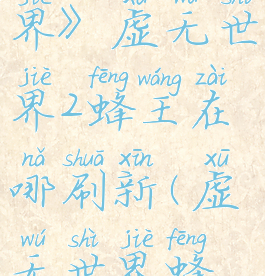 界》虚无世
jiè fēng wáng zài
界2蜂王在
nǎ shuā xīn xū
哪刷新(虚
wú shì jiè fēng
无世界蜂